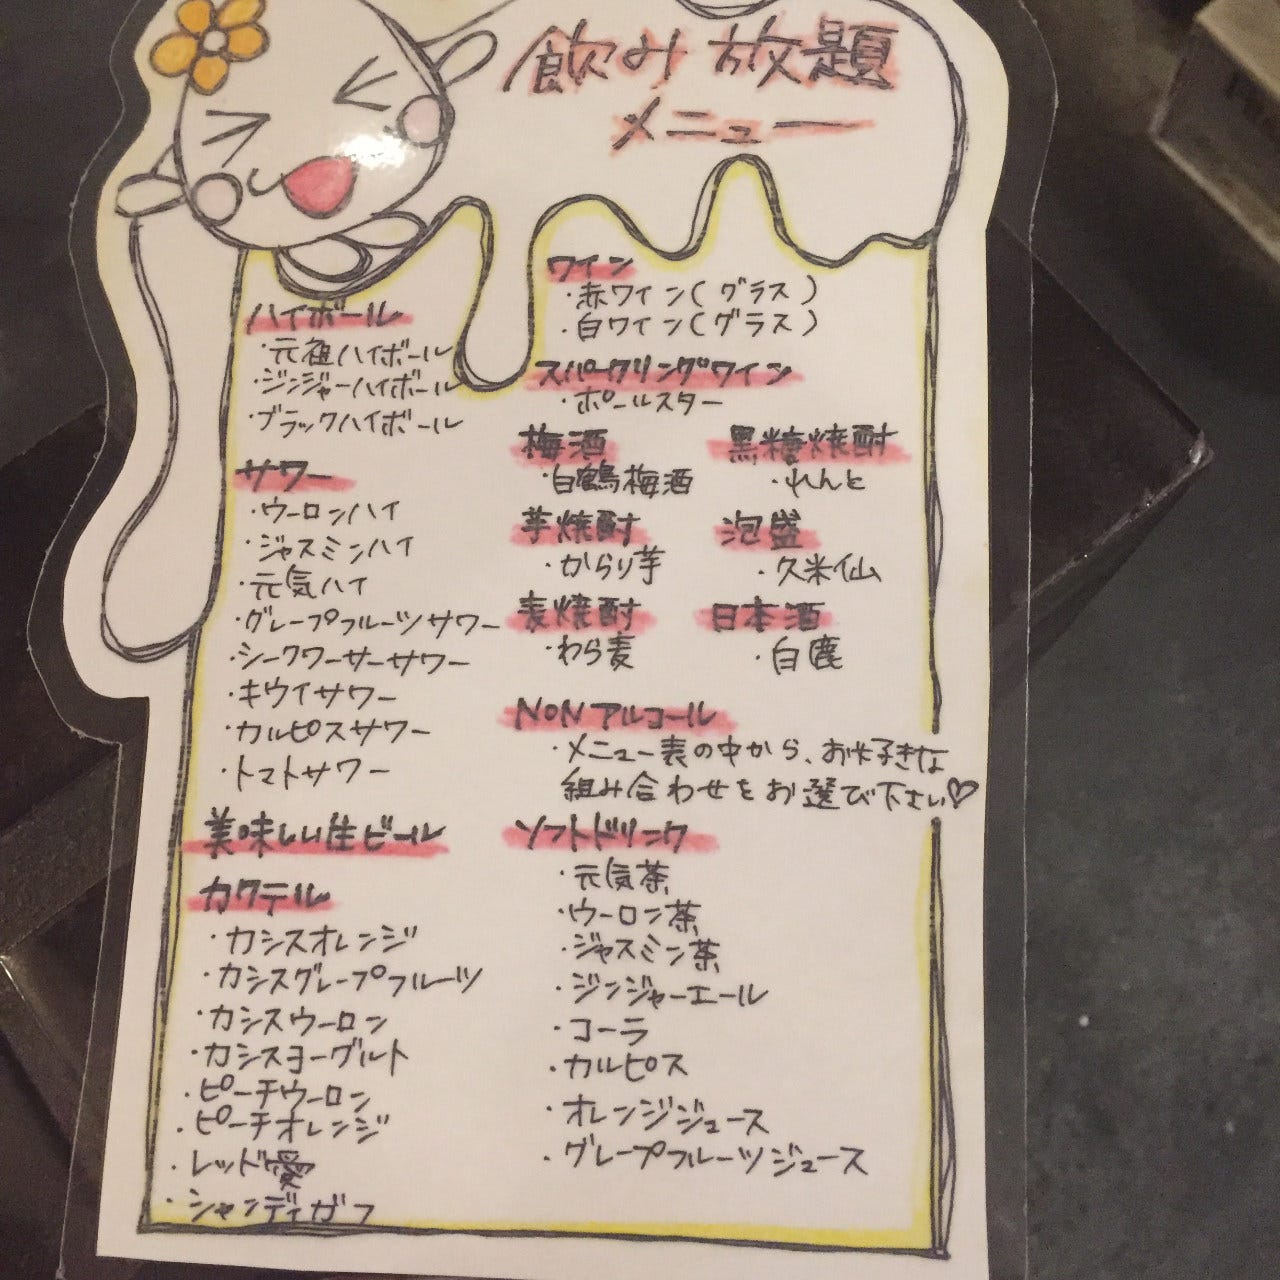 飲み放題
メニュー
ハイボール
・元祖ハイボール
・ジンジャーハイボール
・ブラックハイボール
サワー
・ウーロンハイ
・ジャスミンハイ
・元気ハイ
・グレープフルーツサワー
・シークワーサーサワー
・キウイサワー
・カルピスサワー
・トマトサワー
美味しい生ビール
カクテル
・カシスオレンジ
・カシスグレープフルーツ
・カシスウーロン
・カシスヨーグルト
・ピーチウーロン
・ピーチオレンジ
・レッド愛
・シャンディガフ
ワイン
・赤ワイン(グラス)
・白ワイン(グラス)
スパークリングワイン
・ポールスター
梅酒
・白鶴梅酒
黒糖焼酎
・れんと
芋焼酎
・からり芋
泡盛
・久米仙
麦焼酎
・わら麦
日本酒
・白鹿
NONアルコール
・メニュー表の中から、お好きな
組み合わせをお選び下さい♡
ソフトドリンク
・元気茶
・ウーロン茶
・ジャスミン茶
・ジンジャーエール
・コーラ
・カルピス
・オレンジジュース
・グレープフルーツジュース